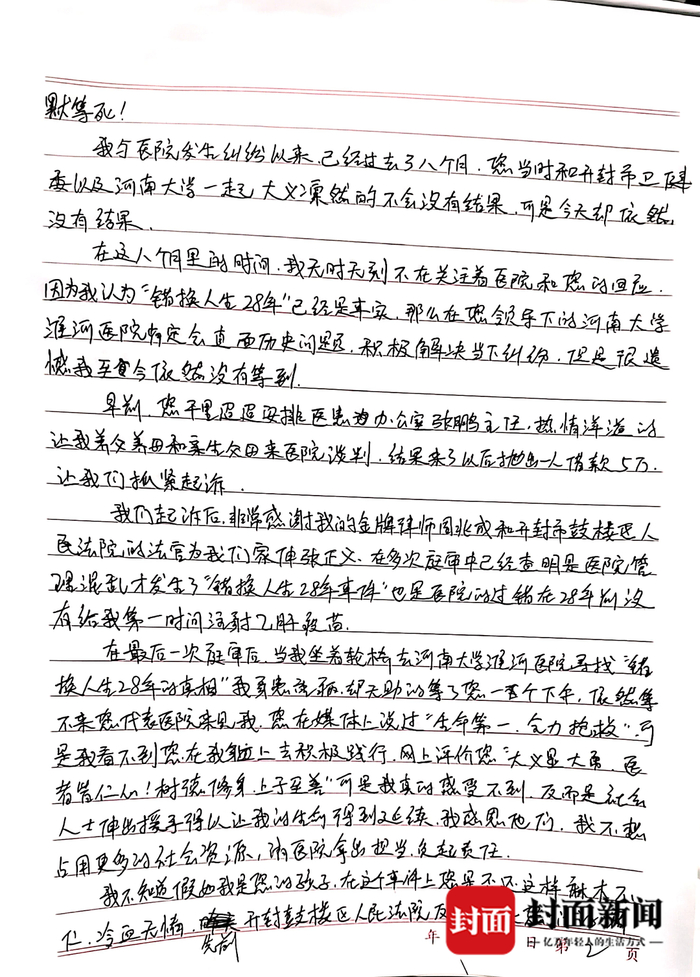 默等死！
我与医院发生纠纷以来，已经过去了八个月，您当时和开封市卫健
委以及河南大学一起大义凛然的不会没有结果，可是今天却依然
没有结果。
在这八个月里的时间，我无时无刻不在关注着医院和您的回应，
因为我认为“错换人生28年”已经是事实，那么在您领导下的河南大学
淮河医院肯定会直面历史问题，积极解决当下纠纷，但是很遗
憾我至今依然没有等到。
早前，您千里迢迢安排医患办公室张鹏主任，热情洋溢的
让我养父养母和亲生父母来医院谈判，结果来了以后抛出一人借款5万，
让我们抓紧起诉。
我们起诉后，非常感谢我的金牌律师周兆成和开封市鼓楼区人
民法院的法官为我们家伸张正义，在多次庭审中已经查明是医院管
理混乱才发生了“错换人生28年事件”也是医院的过错在28年前没
有给我第一时间注射乙肝疫苗。
在最后一次庭审后，当我坐着轮椅去河南大学淮河医院寻找“错
换人生28年的真相”我身患浼病却无助的等了您一百个下午，依然等
不来您代表医院来见我，您在媒体上说过“生命第一，全力抢救”，可
是我看不到您在我身上去积极践行，网上评价您“大义显大勇，医
者皆仁心！树德修身，上于至善”可是我真的感受不到，反而是社会
人士伸出援手得以让我的生命得到延续，我感恩他们，我不想
占用更多的社会资源，请医院拿出担当，负起责任。
我不知道假如我是您的孩子，在这个事件上您是不还这样麻木不
仁，冷血无情，先前开封鼓楼区人民法院
年 日 第 2 页
封面 封面新闻
亿万年轻人的生活方式